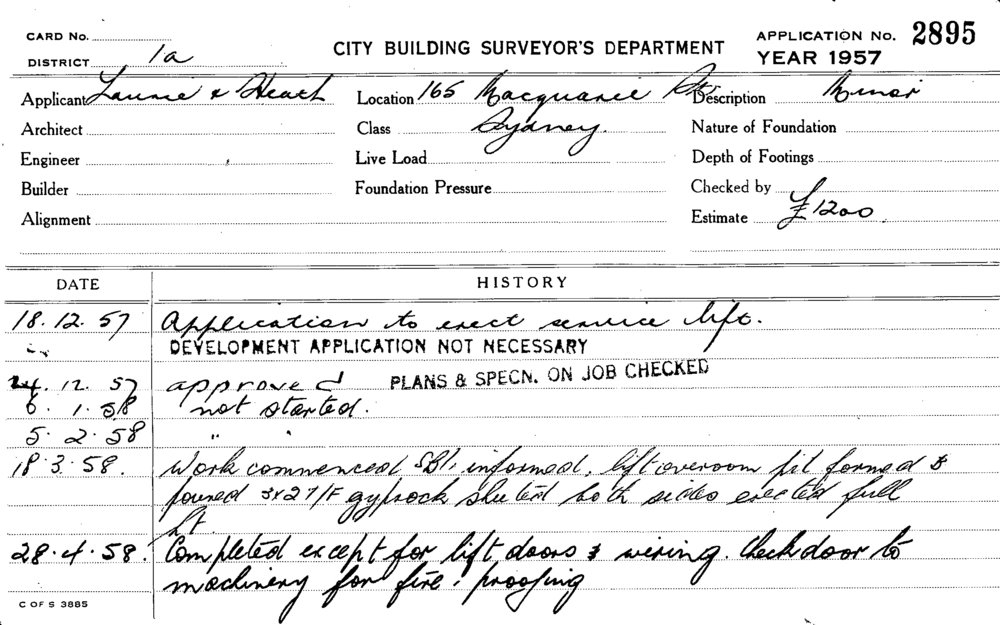 CARD No.
DISTRICT 1a
CITY BUILDING SURVEYOR'S DEPARTMENT
APPLICATION No. 2895
YEAR 1957
Applicant Laurie & Heath
Location 165 Macquarie St.
Description Minor
Architect
Class Sydney.
Nature of Foundation
Engineer
Live Load
Depth of Footings
Builder
Foundation Pressure
Checked by
Alignment
Estimate £1200
DATE HISTORY
18.12.57 Application to erect service lift.
DEVELOPMENT APPLICATION NOT NECESSARY
24.12.57 approved PLANS & SPECN. ON JOB CHECKED
6.1.58 not started.
5.2.58 " "
18.3.58. Work commenced informed, lift pit formed &
poured 3x2 T/F gyprock sheeted both sides erected full
ht.
28.4.58. Completed except for lift doors & wiring. Check door to
machinery for fire proofing
C OF S 3885